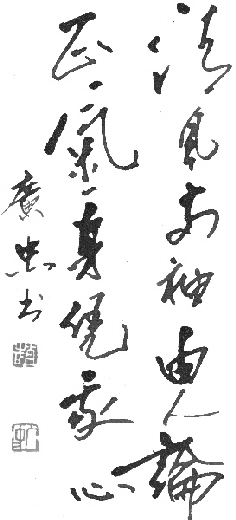 清風兩袖由人論
正氣一身健我心
廣忠书